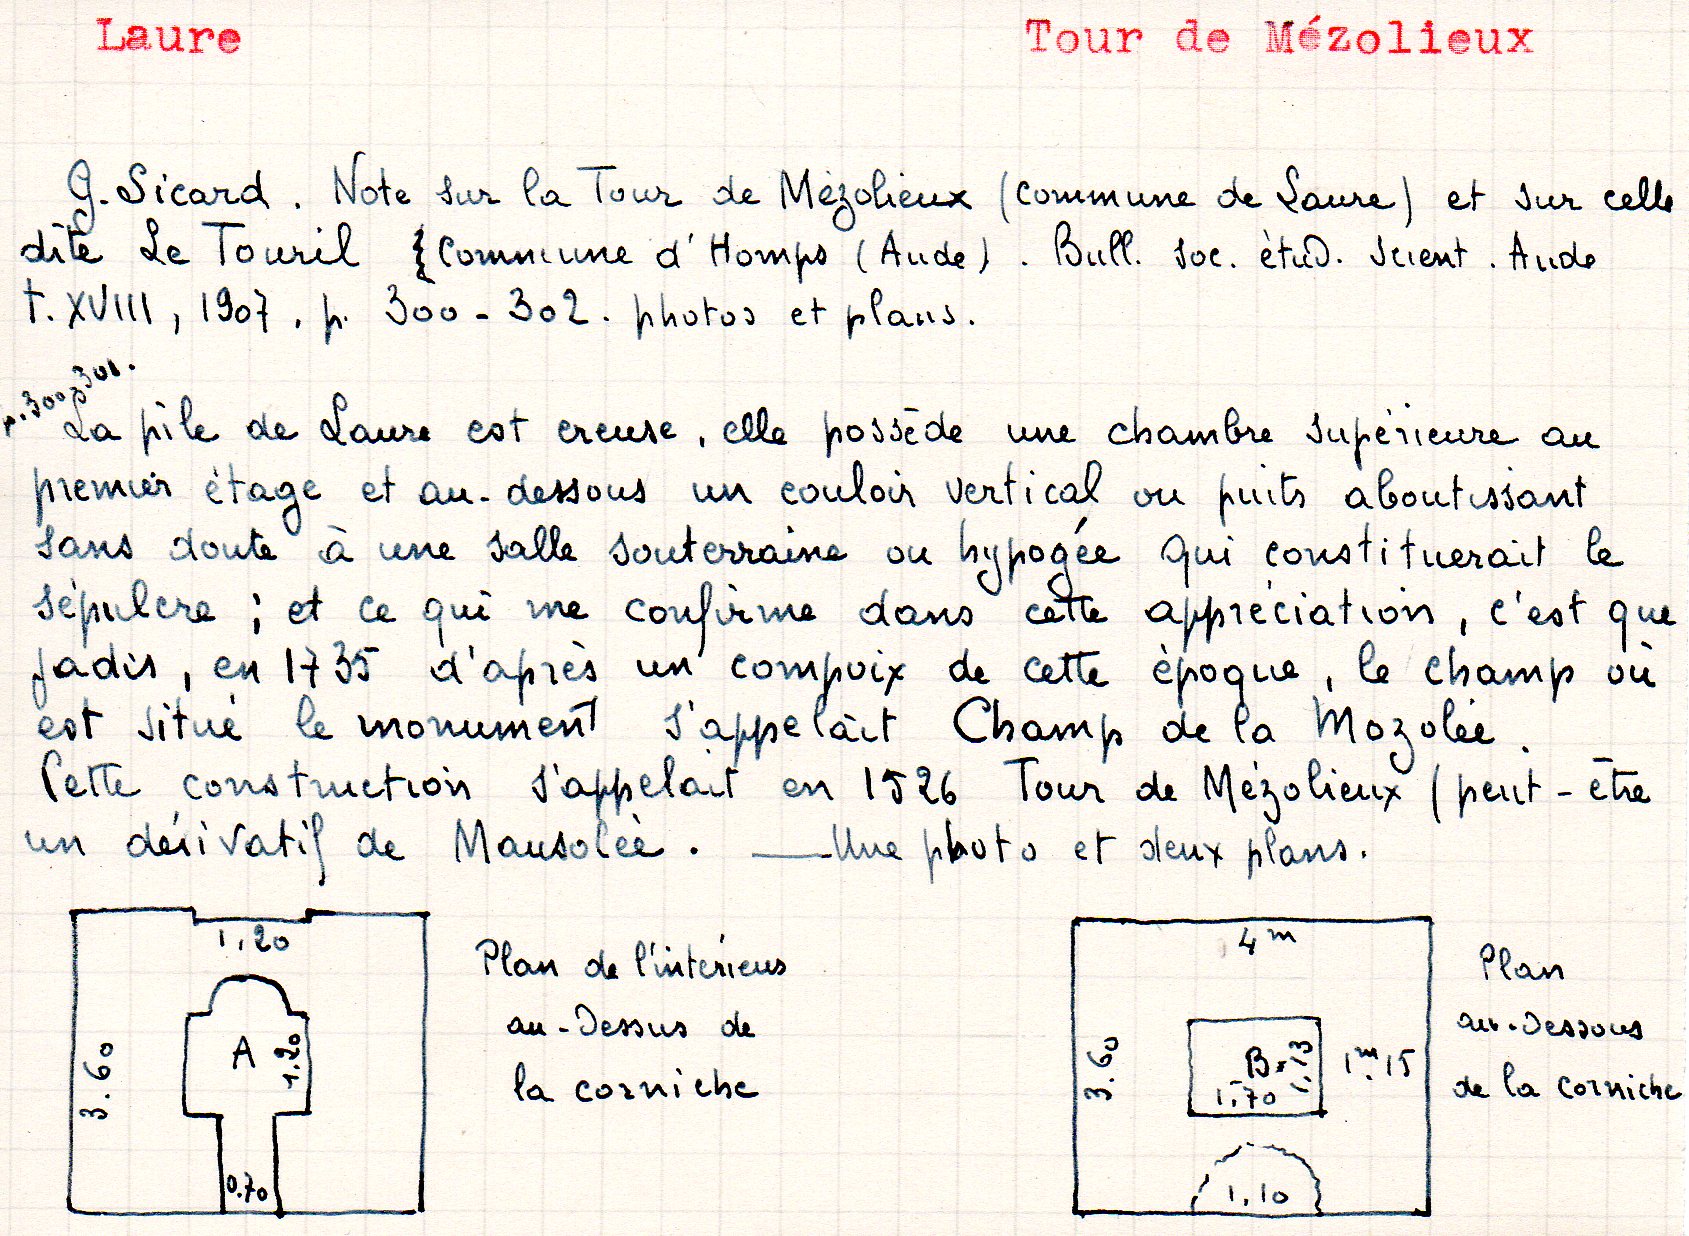 Laure Tour de Mézolieux
G. Sicard. Note sur la Tour de Mézolieux (commune de Laure) et sur celle
dite Le Touril (Commune d'Homps (Aude). Bull. soc. étud. scient. Aude
t. XVIII, 1907, p. 300-302. photos et plans.
p. 300-301.
La pile de Laure est creuse, elle possède une chambre supérieure au
premier étage et au-dessous un couloir vertical ou puits aboutissant
sans doute à une salle souterraine ou hypogée qui constituerait le
sépulcre ; et ce qui me confirme dans cette appréciation, c'est que
jadis, en 1735 d'après un compoix de cette époque, le champ où
est situé le monument s'appelait Champ de la Mozolée.
Cette construction s'appelait en 1526 Tour de Mézolieux (peut-être
un dérivatif de Mausolée. — Une photo et deux plans.
1,20
A
1.20
3.60
0.70
Plan de l'intérieur
au-dessus de
la corniche
4 m
3.60
B
1.13
1,70
1m.15
1,10
Plan
au-dessous
de la corniche